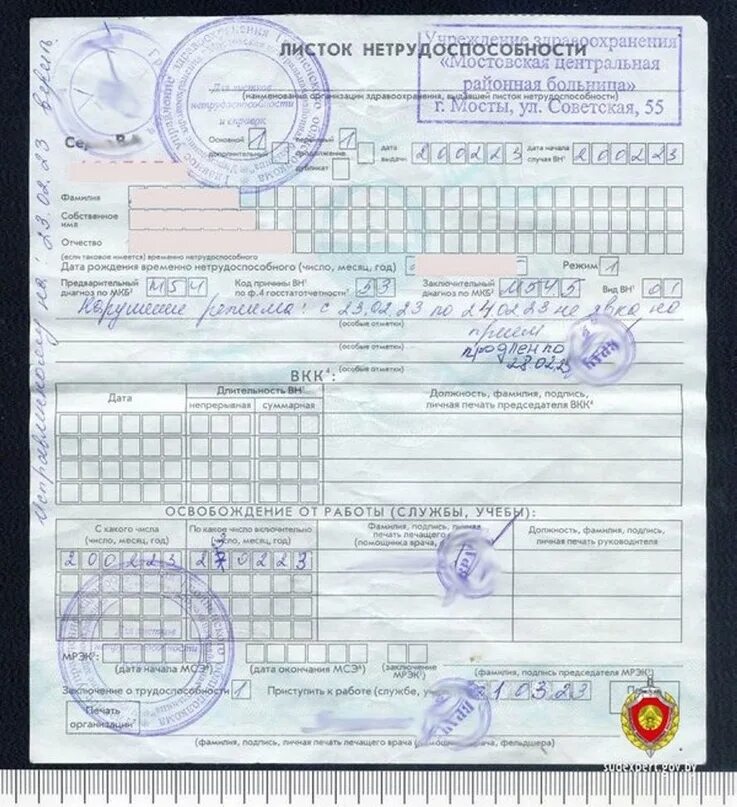 ЛИСТОК НЕТРУДОСПОСОБНОСТИ
Учреждение здравоохранения
«Мостовская центральная
районная больница»
г. Мосты, ул. Советская, 55
(наименование организации здравоохранения, выдавшей листок нетрудоспособности)
Для листков
нетрудоспособности
и справок
Основной 1 первичный 1
дополнительный продолжение
дубликат
дата выдачи 200223 дата начала случая ВН¹ 200223
Фамилия
Собственное имя
Отчество
(если таковое имеется) временно нетрудоспособного
Дата рождения временно нетрудоспособного (число, месяц, год) Режим 1
Предварительный диагноз по МКБ² М54 Код причины ВН¹ по ф.4 госстатотчетности³ 53 Заключительный диагноз по МКБ² М54.5 Вид ВН¹ 01
Нарушение режима: с 23.02.23 по 24.02.23 не явка на
(особые отметки)
прием
(особые отметки)
продлен по
28.02.23
(особые отметки)
ВКК⁴:
Дата Длительность ВН¹ Должность, фамилия, подпись,
непрерывная суммарная личная печать председателя ВКК⁴
ОСВОБОЖДЕНИЕ ОТ РАБОТЫ (СЛУЖБЫ, УЧЕБЫ):
С какого числа По какое число включительно Фамилия, подпись, личная Должность, фамилия, подпись,
(число, месяц, год) (число, месяц, год) печать лечащего врача личная печать руководителя
(помощника врача,
200223 2 0223
МРЭК⁵:
(дата начала МСЭ⁶) (дата окончания МСЭ⁶) (заключение МРЭК⁵) (фамилия, подпись председателя МРЭК⁵)
Заключение о трудоспособности 1 Приступить к работе (службе, учебе) 010323
Печать
организации
(фамилия, подпись, личная печать лечащего врача (помощника врача, фельдшера)
Исправленному на 23.02.23 верить
sudexpert.gov.by